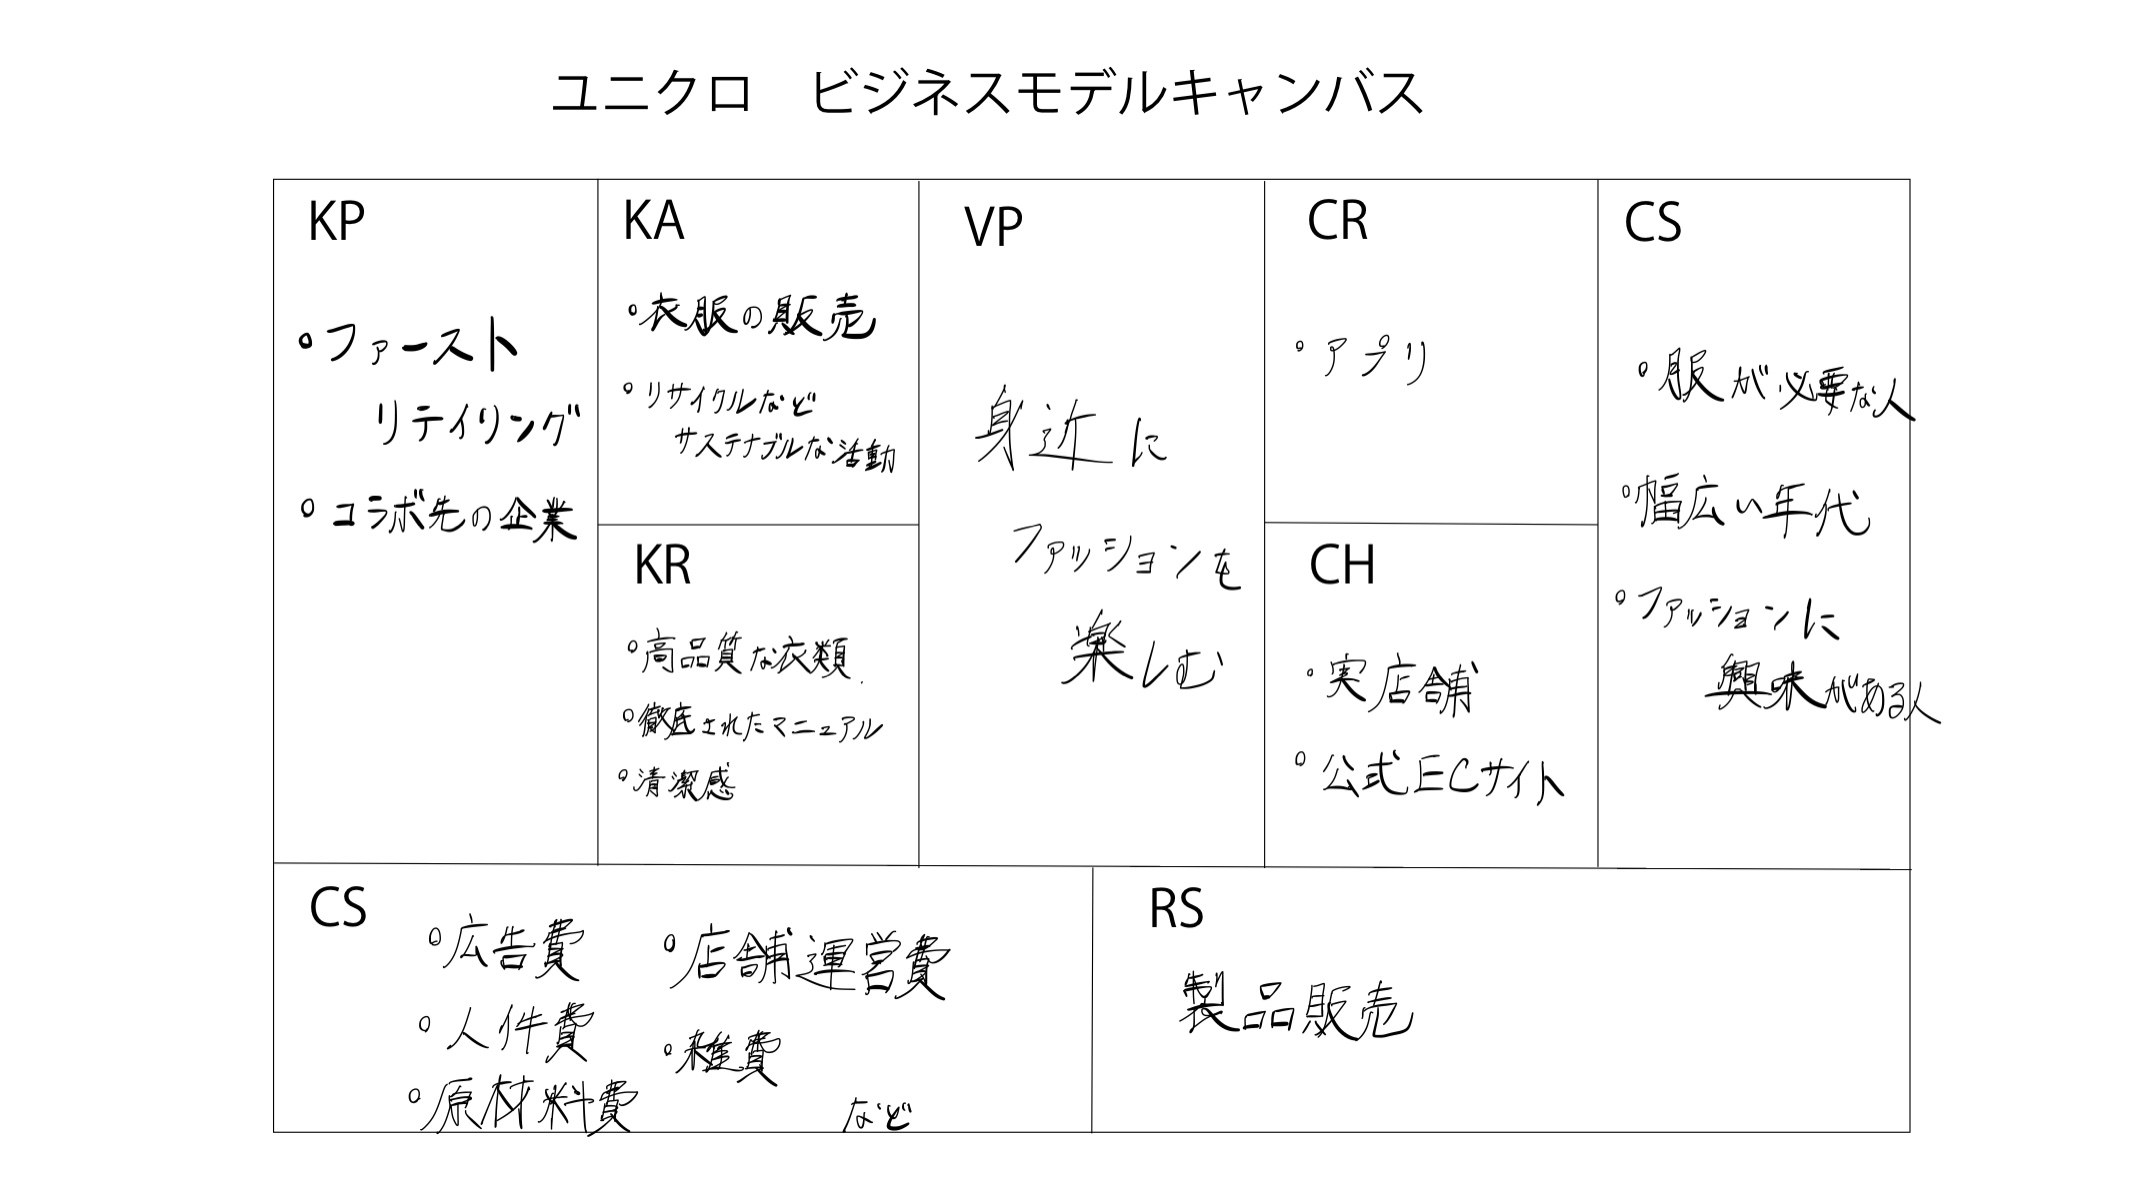 ユニクロ　ビジネスモデルキャンバス
KP
・ファースト
リテイリング
・コラボ先の企業
KA
・衣服の販売
・リサイクルなど
サステナブルな活動
KR
・高品質な衣類.
・徹底されたマニュアル
・清潔感
VP
身近に
ファッションを
楽しむ
CR
・アプリ
CH
・実店舗
・公式ECサイト
CS
・服が必要な人
・幅広い年代
・ファッションに
興味がある人
CS
・広告費
・人件費
・原材料費
・店舗運営費
・雑費
など
RS
製品販売